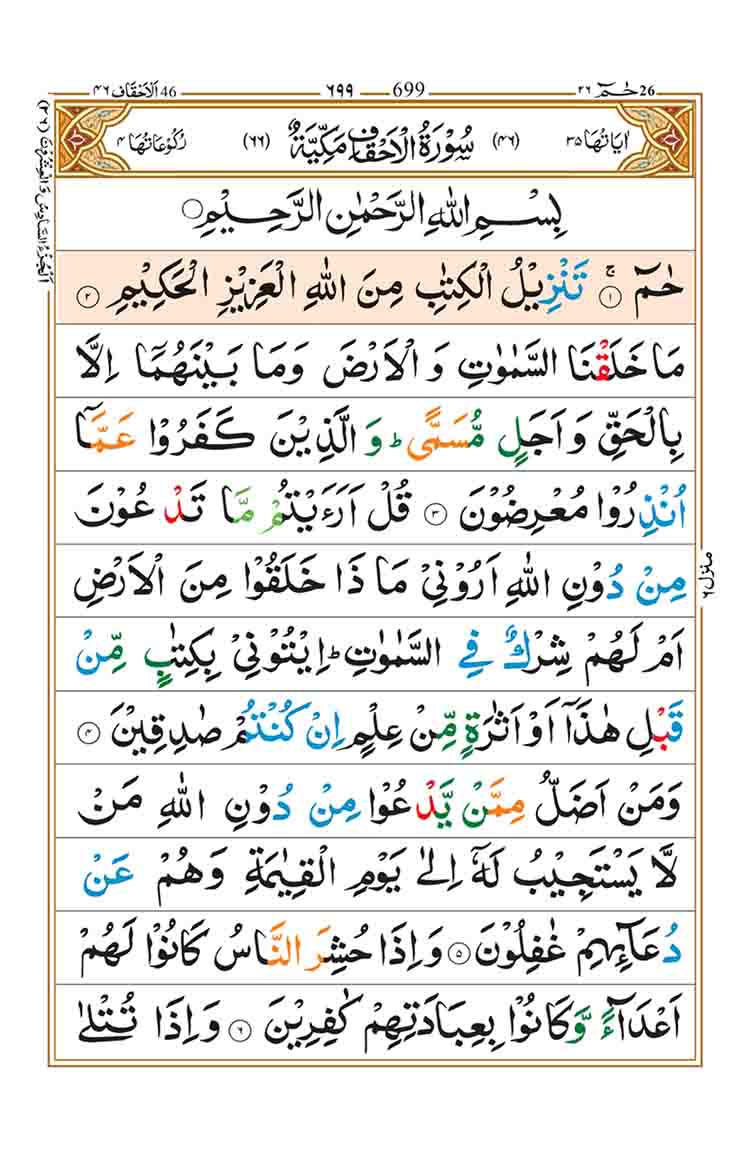 ٤٦ اَلْاَحْقَاف 46 ٦٩٩ 699 ٢٦ حٰمٓ 26
اٰيَاتُهَا ٣٥ (٤٦) سُوْرَةُ الْاَحْقَافِ مَكِّيَّةٌ (٦٦) رُكُوْعَاتُهَا ٤
بِسْمِ اللهِ الرَّحْمٰنِ الرَّحِيْمِ
حٰمٓ ۚ ١ تَنْزِيْلُ الْكِتٰبِ مِنَ اللهِ الْعَزِيْزِ الْحَكِيْمِ ٢
مَا خَلَقْنَا السَّمٰوٰتِ وَ الْاَرْضَ وَمَا بَيْنَهُمَاۤ اِلَّا
بِالْحَقِّ وَ اَجَلٍ مُّسَمًّىؕ وَ الَّذِيْنَ كَفَرُوْا عَمَّاۤ
اُنْذِرُوْا مُعْرِضُوْنَ ٣ قُلْ اَرَءَيْتُمْ مَّا تَدْعُوْنَ
مِنْ دُوْنِ اللهِ اَرُوْنِيْ مَا ذَا خَلَقُوْا مِنَ الْاَرْضِ
اَمْ لَهُمْ شِرْكٌ فِي السَّمٰوٰتِؕ اِيْتُوْنِيْ بِكِتٰبٍ مِّنْ
قَبْلِ هٰذَاۤ اَوْ اَثٰرَةٍ مِّنْ عِلْمٍ اِنْ كُنْتُمْ صٰدِقِيْنَ ٤
وَمَنْ اَضَلُّ مِمَّنْ يَّدْعُوْا مِنْ دُوْنِ اللهِ مَنْ
لَّا يَسْتَجِيْبُ لَهٗۤ اِلٰى يَوْمِ الْقِيٰمَةِ وَهُمْ عَنْ
دُعَآئِهِمْ غٰفِلُوْنَ ٥ وَ اِذَا حُشِرَ النَّاسُ كَانُوْا لَهُمْ
اَعْدَآءً وَّ كَانُوْا بِعِبَادَتِهِمْ كٰفِرِيْنَ ٦ وَ اِذَا تُتْلٰى
اَلْجُزْءُ السَّادِسُ وَ الْعِشْرُوْنَ (٢٦)
منزل ٦